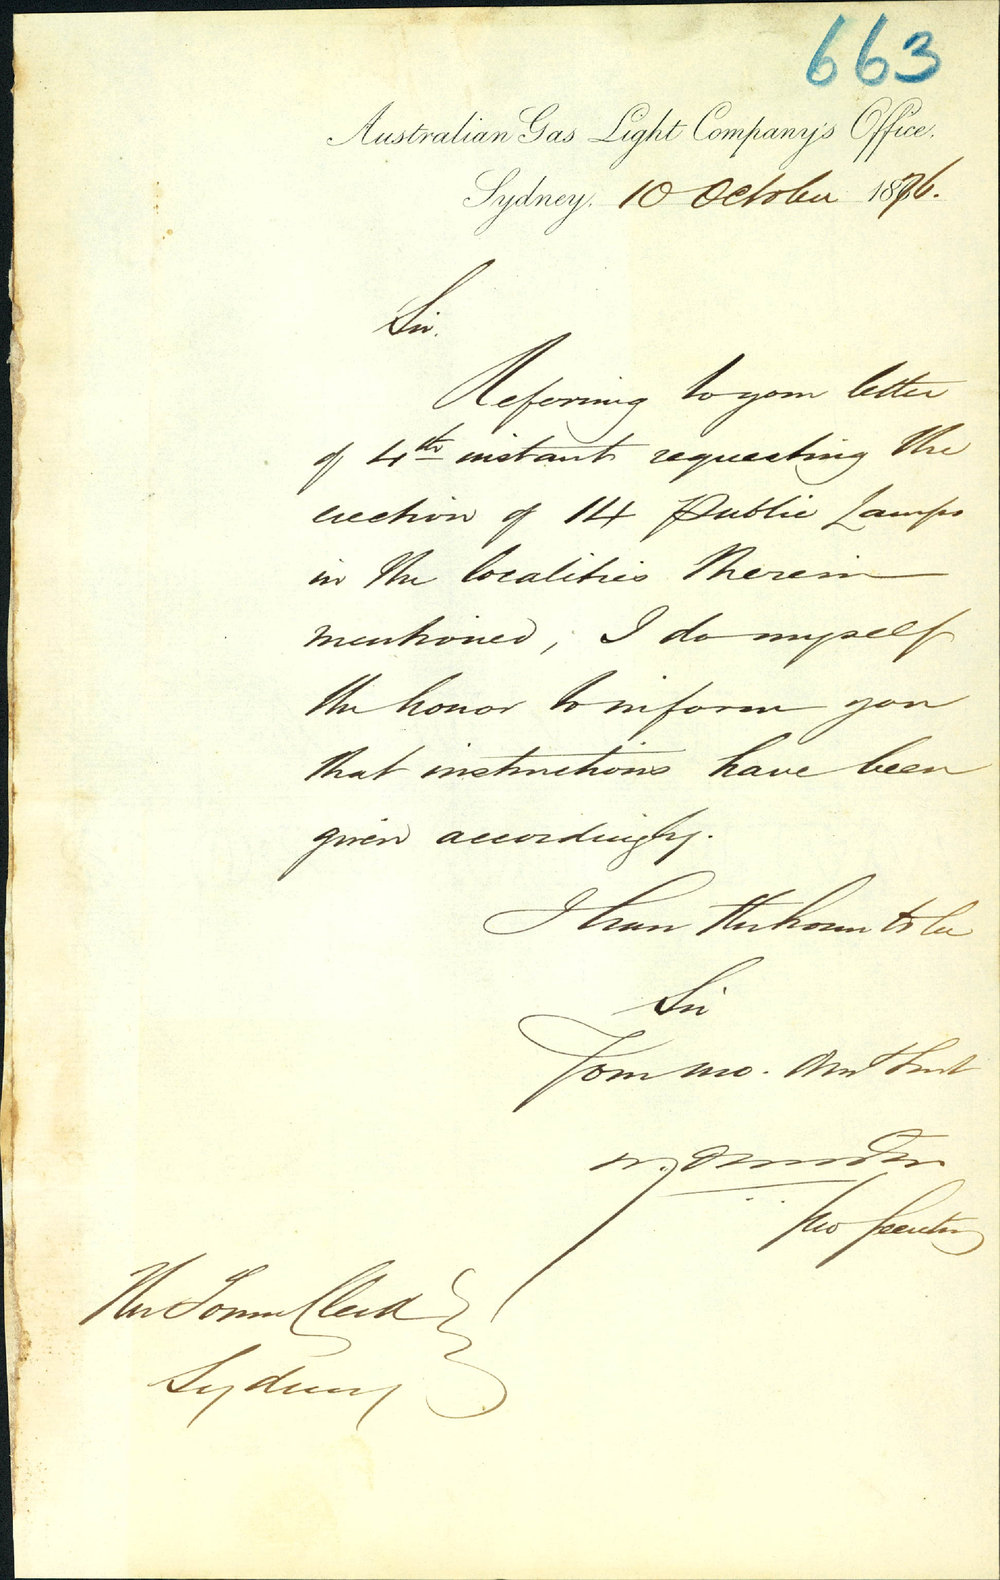 663
Australian Gas Light Company's Office.
Sydney. 10 October 1876.
Sir.
Referring to your letter
of 4th instant requesting the
erection of 14 Public Lamps
in the localities therein
mentioned, I do myself
the honor to inform you
that instructions have been
given accordingly.
I have the honor to be
Sir
Your mo. Obt Servt
Secretary
The Town Clerk
Sydney